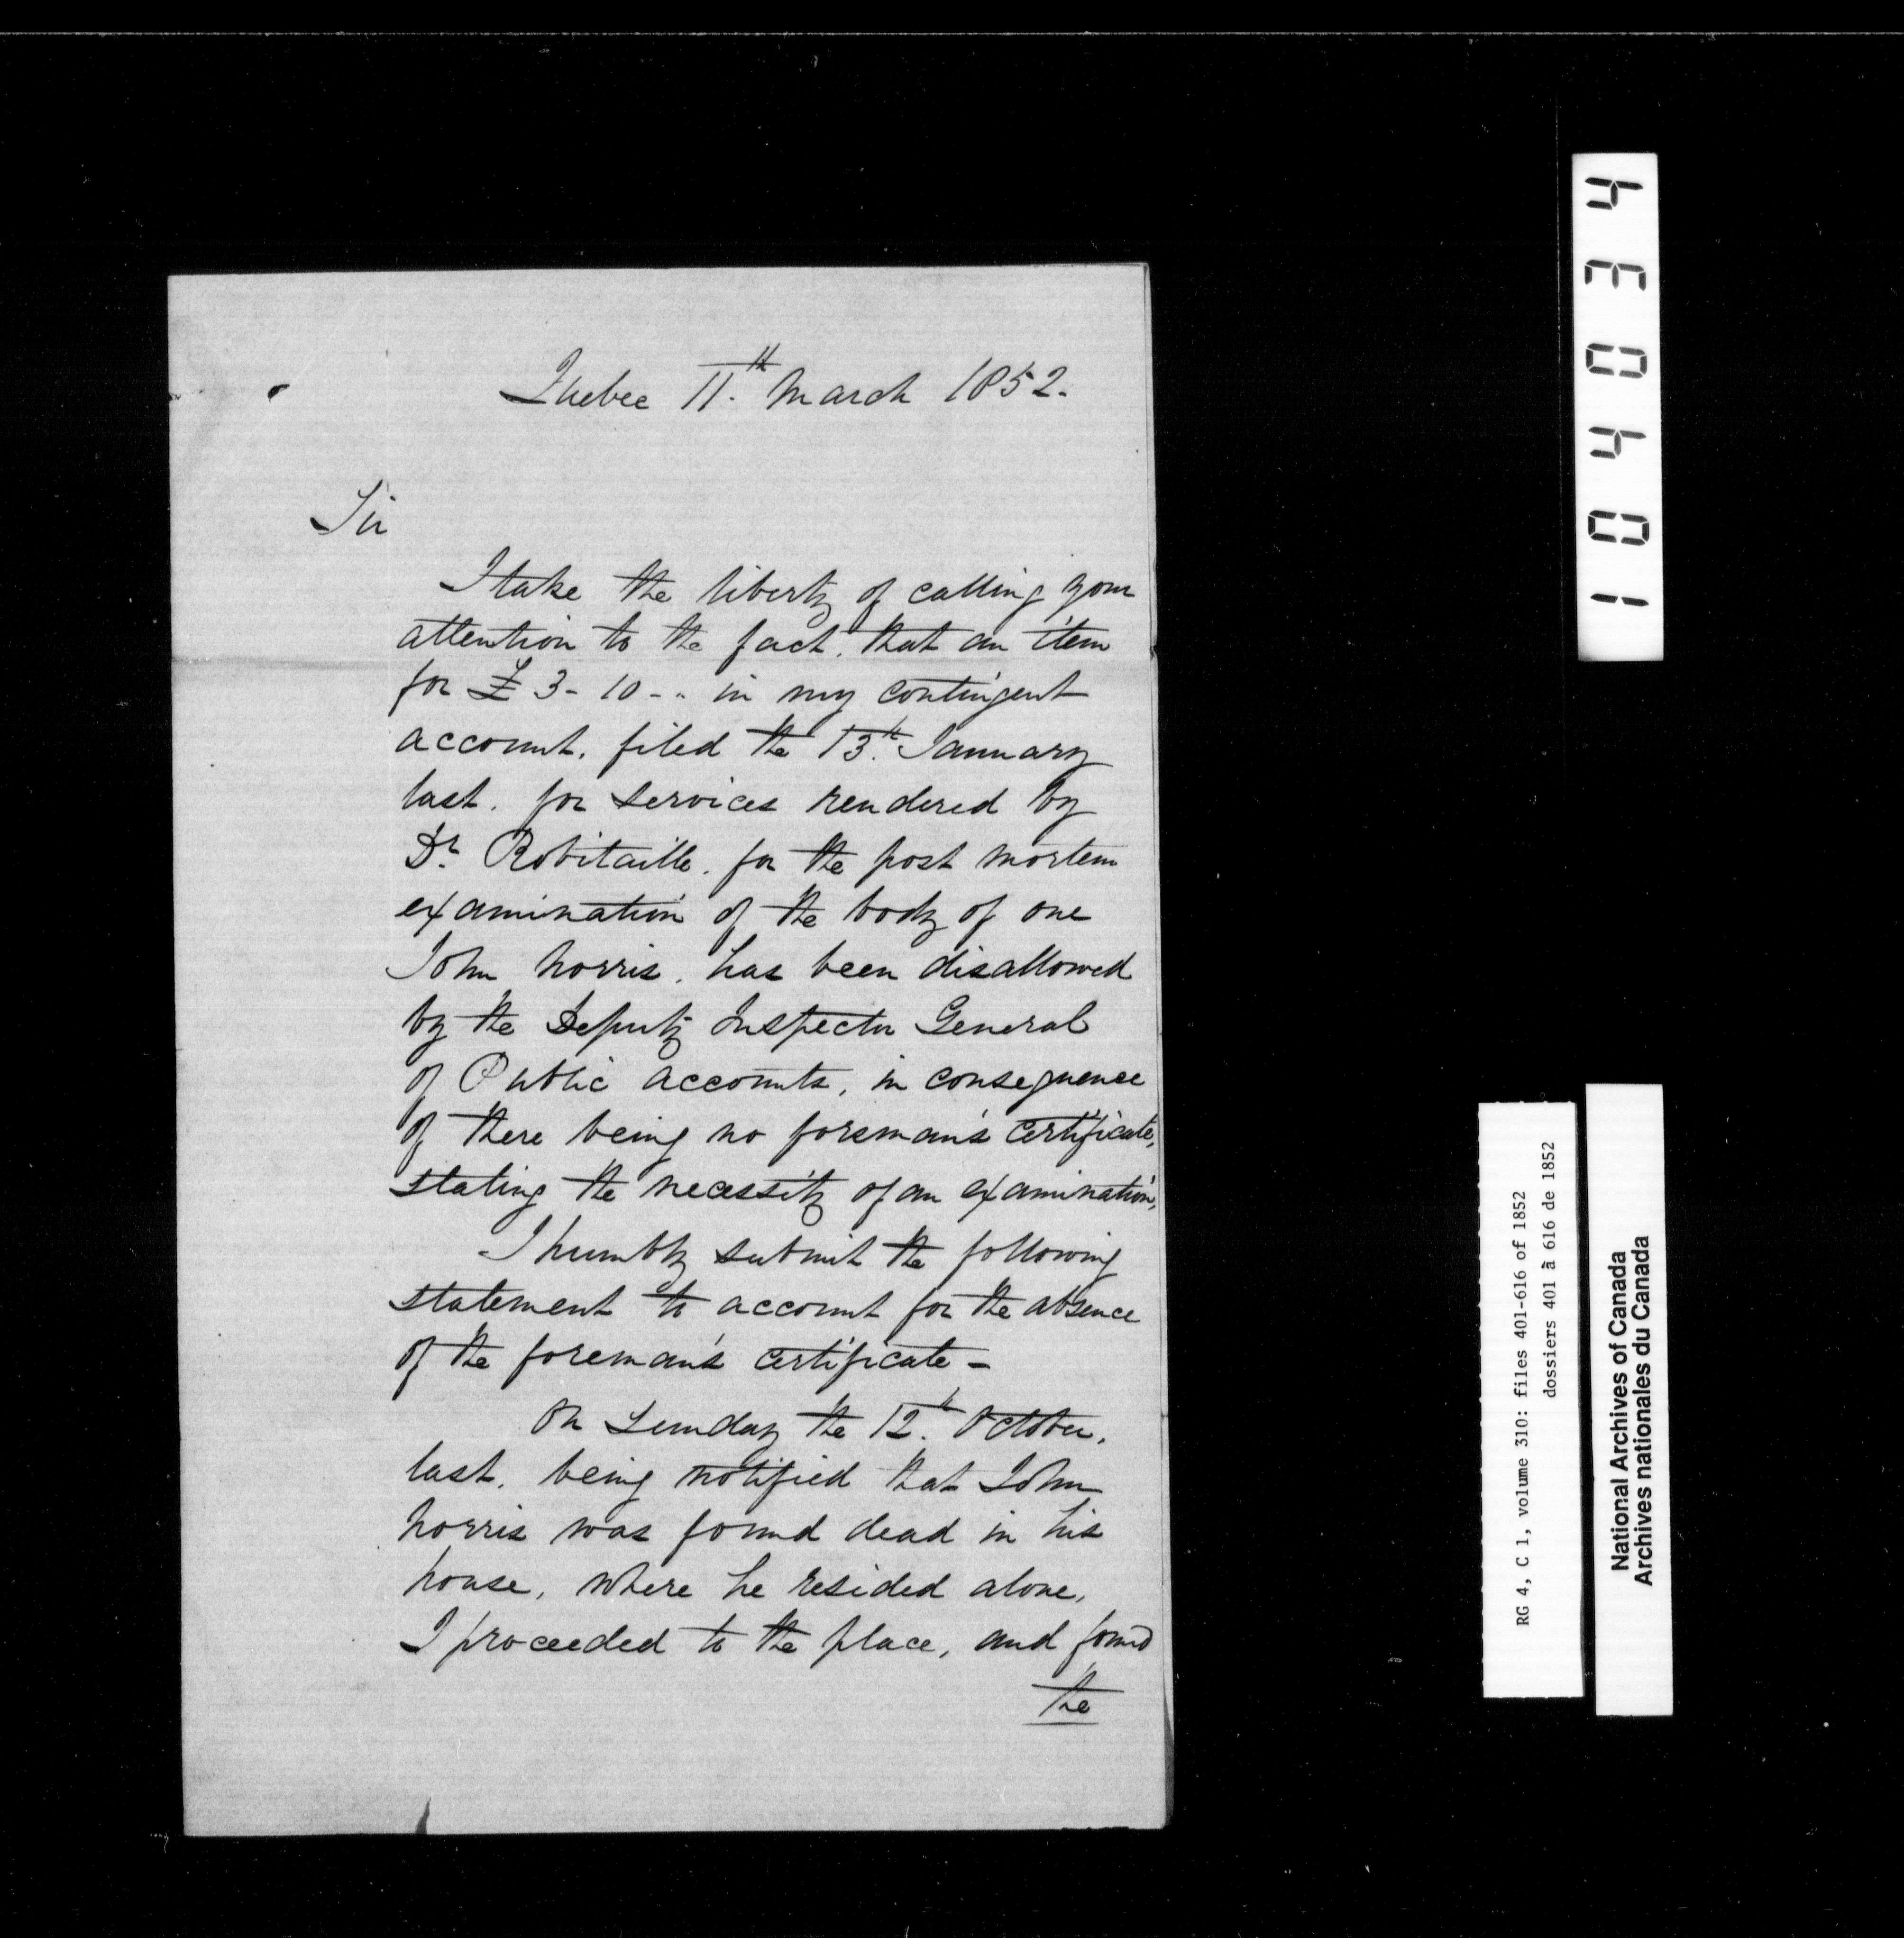 Quebec 11th. March 1852.
Sir
I take the liberty of calling your
attention to the fact. that an item
for £ 3 - 10 - - in my contingent
account. filed the 13th. January
last. for services rendered by
Dr. Robitaille. for the post mortem
examination of the body of one
John Norris. has been disallowed
by the Deputy Inspector General
of Public accounts, in consequence
of there being no foreman's certificate,
stating the necessity of an examination,
I humbly submit the following
statement to account for the absence
of the foreman's certificate -
On Sunday the 12th. October.
last. being notified that John
Norris was found dead in his
house, where he resided alone.
I proceeded to the place, and found
the
104034
RG 4, C 1, volume 310: files 401-616 of 1852
dossiers 401 à 616 de 1852
National Archives of Canada
Archives nationales du Canada